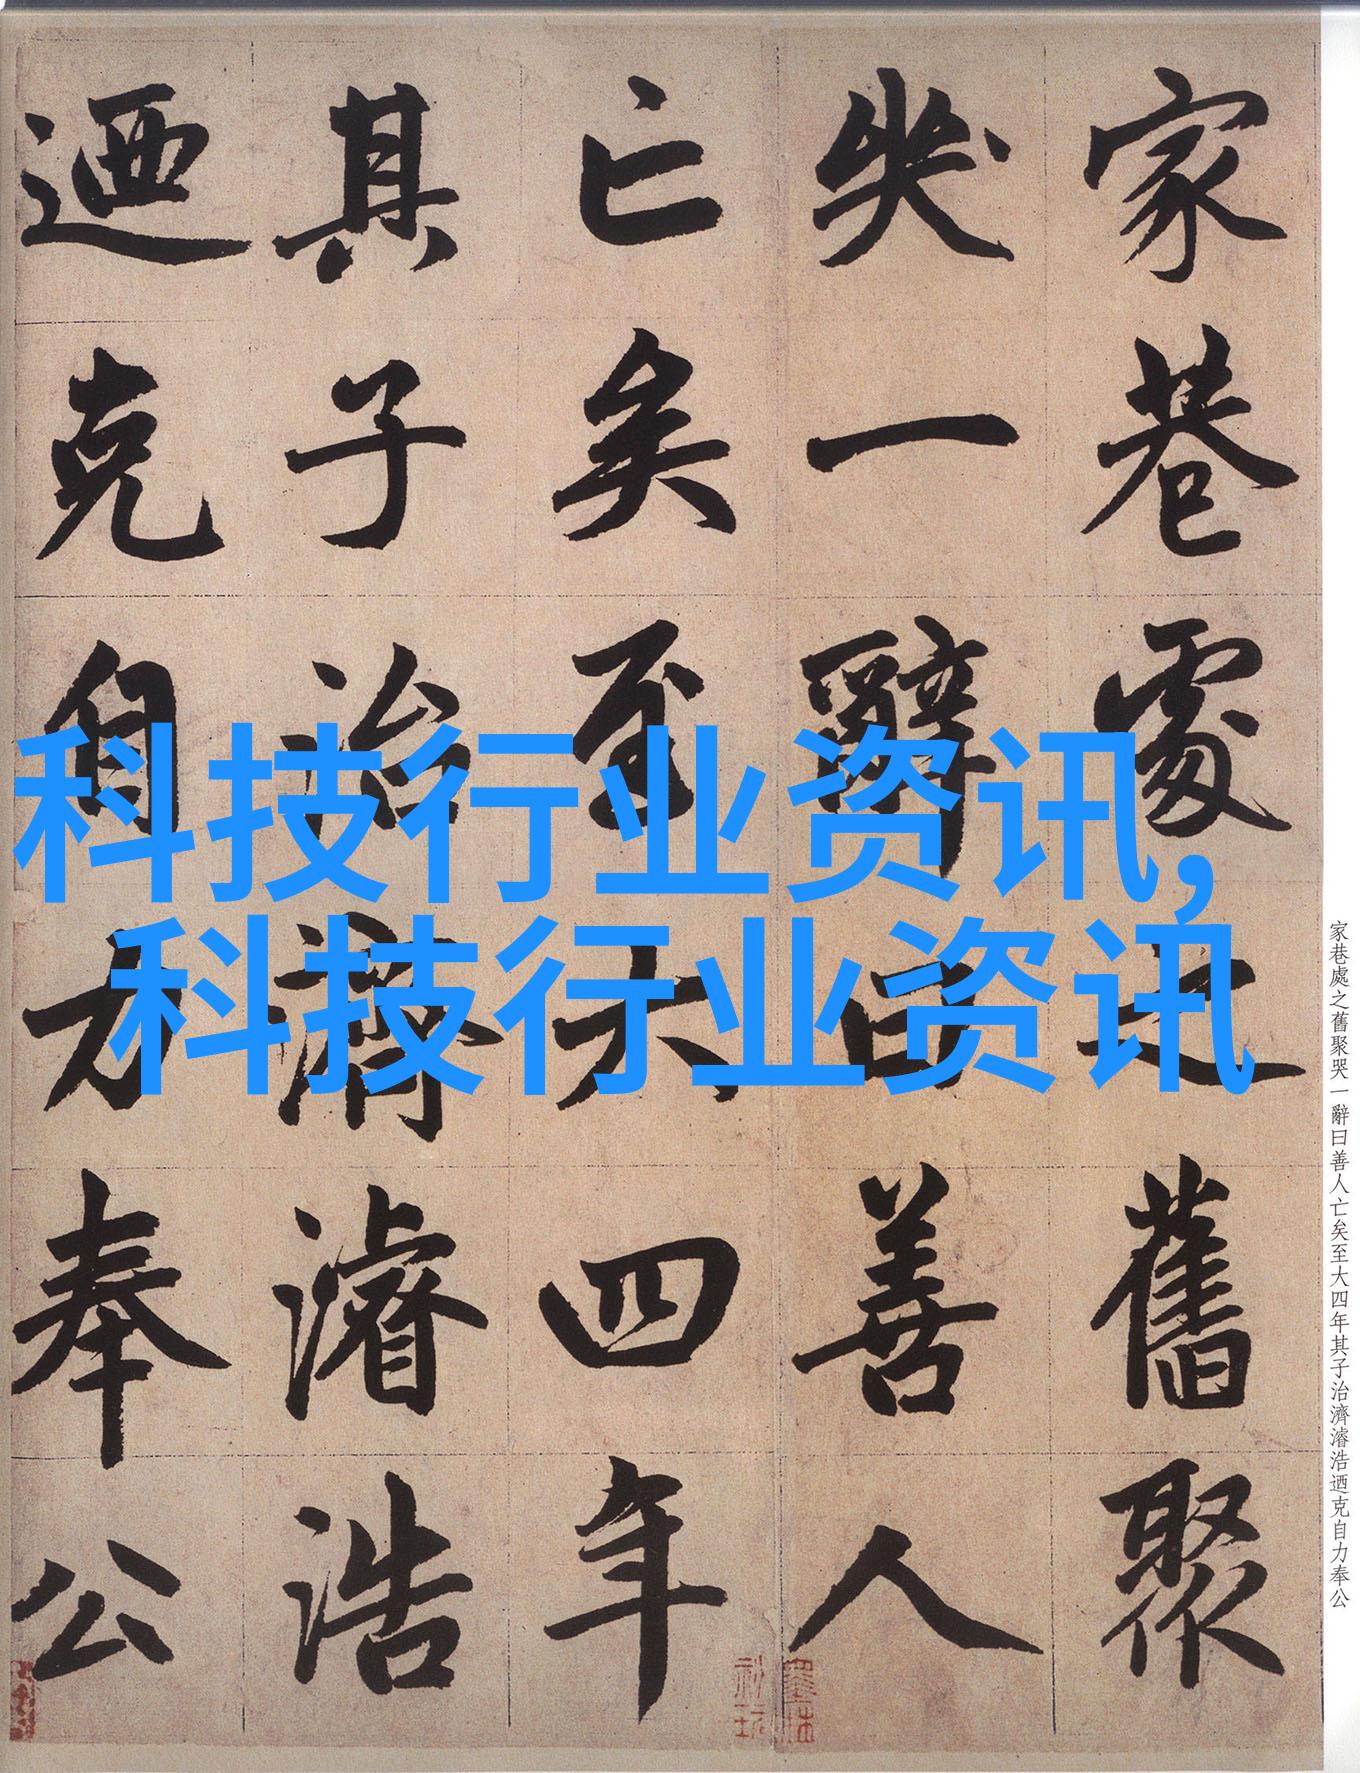 家巷處之舊聚
哭一辭曰善人
亡矣至大四年
其子治濟濬浩
迺克自力奉公
科技行业资讯,
科技行业资讯
家巷處之舊聚哭一辭曰善人亡矣至大四年其子治濟濬浩迺克自力奉公